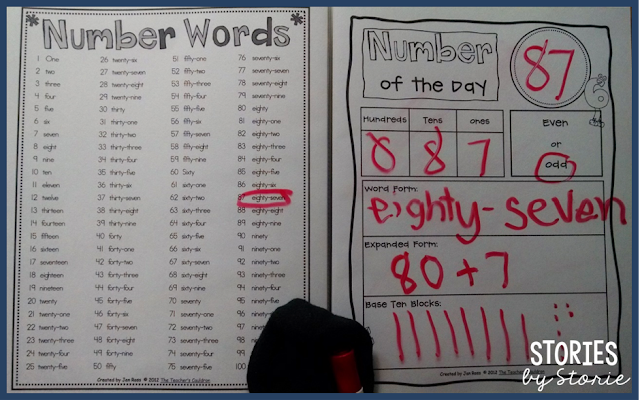 Number Words
1 One
2 two
3 three
4 four
5 five
6 six
7 seven
8 eight
9 nine
10 ten
11 eleven
12 twelve
13 thirteen
14 fourteen
15 fifteen
16 sixteen
17 seventeen
18 eighteen
19 nineteen
20 twenty
21 twenty-one
22 twenty-two
23 twenty-three
24 twenty-four
25 twenty-five
26 twenty-six
27 twenty-seven
28 twenty-eight
29 twenty-nine
30 thirty
31 thirty-one
32 thirty-two
33 thirty-three
34 thirty-four
35 thirty-five
36 thirty-six
37 thirty-seven
38 thirty-eight
39 thirty-nine
40 forty
41 forty-one
42 forty-two
43 forty-three
44 forty-four
45 forty-five
46 forty-six
47 forty-seven
48 forty-eight
49 forty-nine
50 fifty
51 fifty-one
52 fifty-two
53 fifty-three
54 fifty-four
55 fifty-five
56 fifty-six
57 fifty-seven
58 fifty-eight
59 fifty-nine
60 Sixty
61 sixty-one
62 sixty-two
63 sixty-three
64 sixty-four
65 sixty-five
66 sixty-six
67 sixty-seven
68 sixty-eight
69 sixty-nine
70 seventy
71 seventy-one
72 seventy-two
73 seventy-three
74 seventy-four
75 seventy-five
76 seventy-six
77 seventy-seven
78 seventy-eight
79 seventy-nine
80 eighty
81 eighty-one
82 eighty-two
83 eighty-three
84 eighty-four
85 eighty-five
86 eighty-six
87 eighty-seven
88 eighty-eight
89 eighty-nine
90 ninety
91 ninety-one
92 ninety-two
93 ninety-three
94 ninety-four
95
96
97
98
99
100
Created by Jen Ross © 2012 The Teacher's Cauldron
Number
of the Day
87
Hundreds Tens ones
0 8 7
Even
or
odd
Word Form:
eighty-seven
Expanded Form:
80 + 7
Base Ten Blocks:
Created by Jen Ross © 2012 The Teacher's Cauldron
STORIES
by Storie